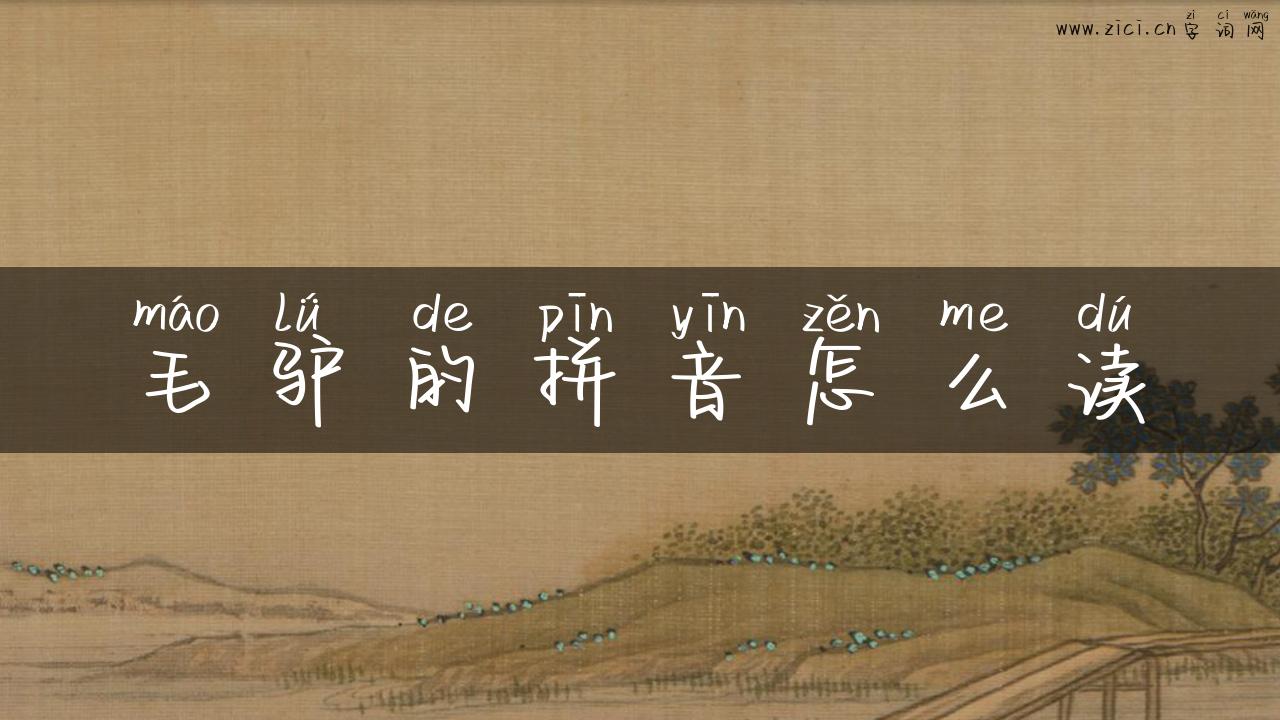 zì cí wǎng
www.zici.cn 字词网
máo lǘ de pīn yīn zěn me dú
毛驴的拼音怎么读